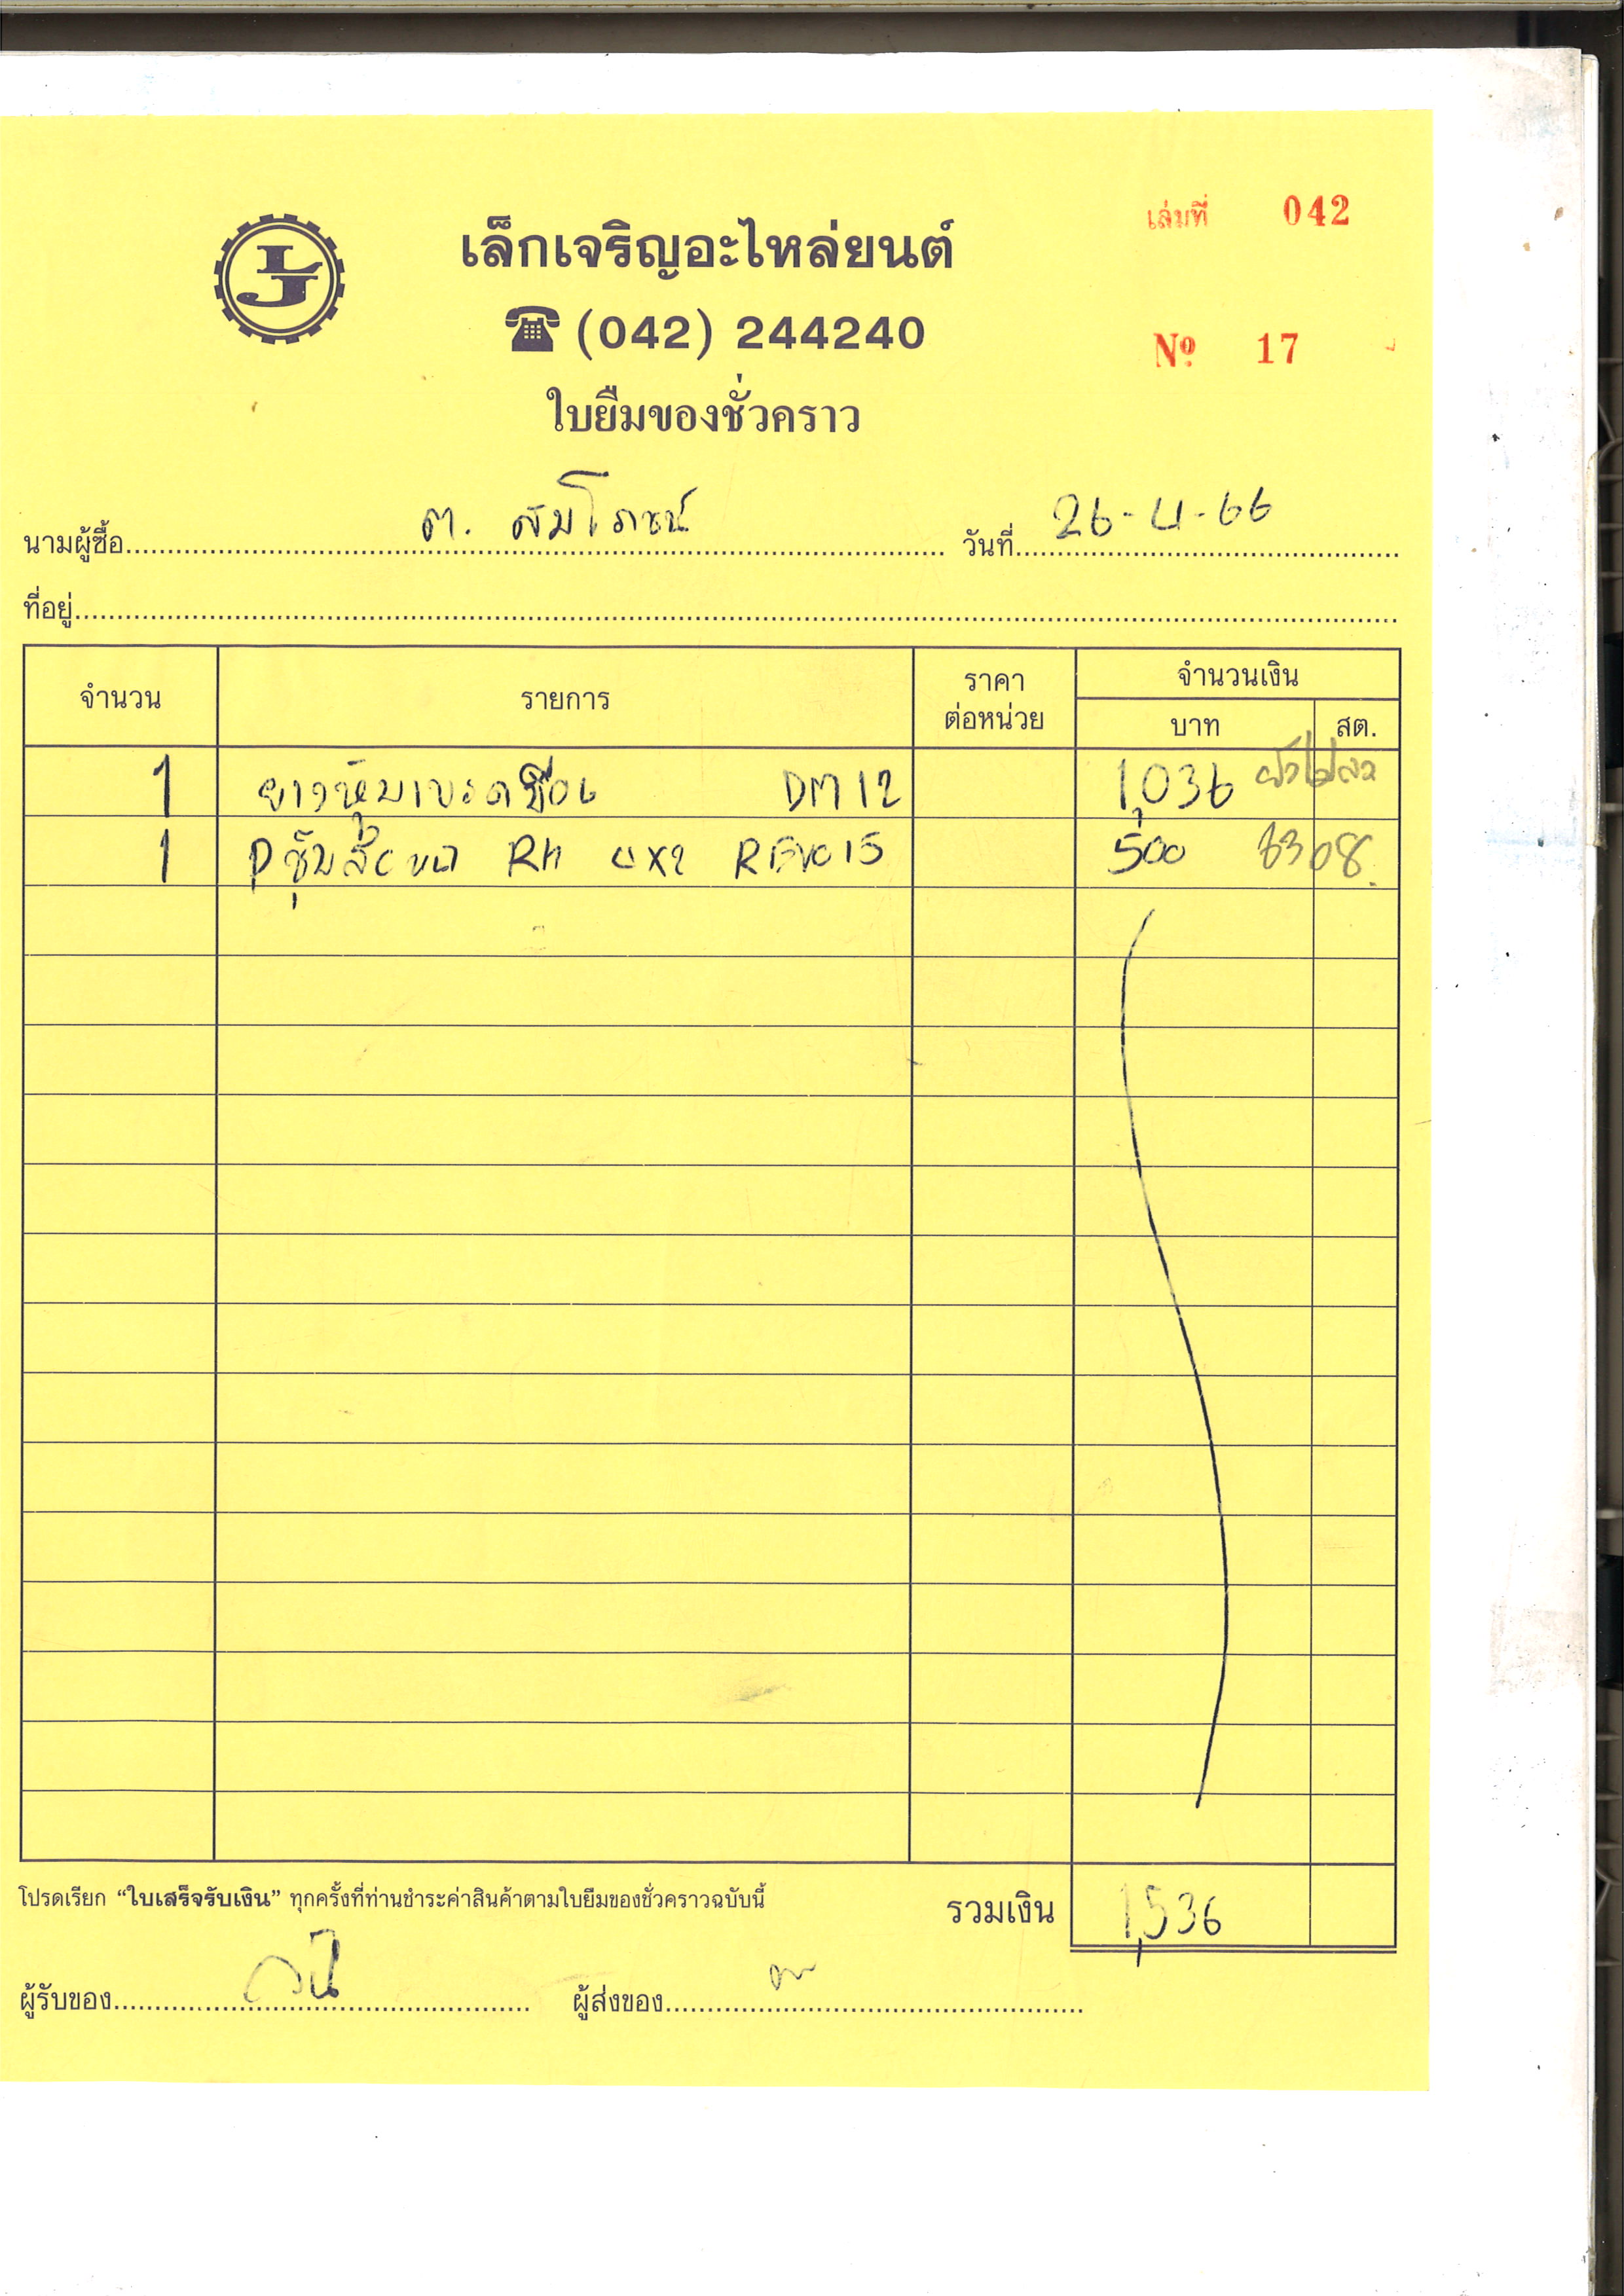 เล่มที่ 042
LJ
เล็กเจริญอะไหล่ยนต์
☎ (042) 244240
Nº 17
ใบยืมของชั่วคราว
นามผู้ซื้อ ต. สมโภชน์ วันที่ 26-4-66
ที่อยู่
จำนวน รายการ ราคาต่อหน่วย จำนวนเงิน
บาท สต.
1 ยางหุ้มเบรคมือ DM12 1,036
1 RH 4x2 REVO15 500 8308
โปรดเรียก “ใบเสร็จรับเงิน” ทุกครั้งที่ท่านชำระค่าสินค้าตามใบยืมของชั่วคราวฉบับนี้ รวมเงิน 1,536
ผู้รับของ ผู้ส่งของ